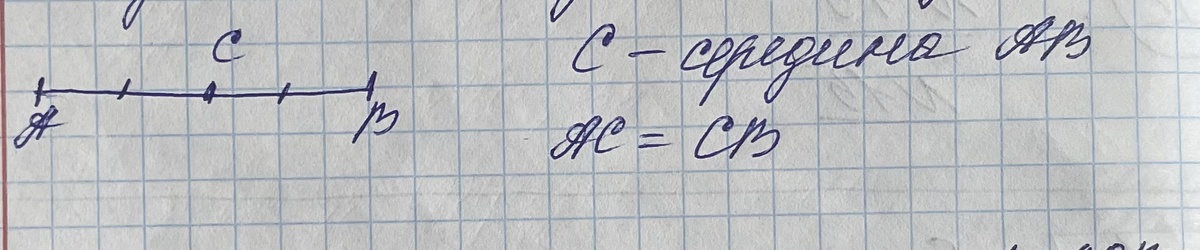 C
A B
C – середина AB
AC = CB